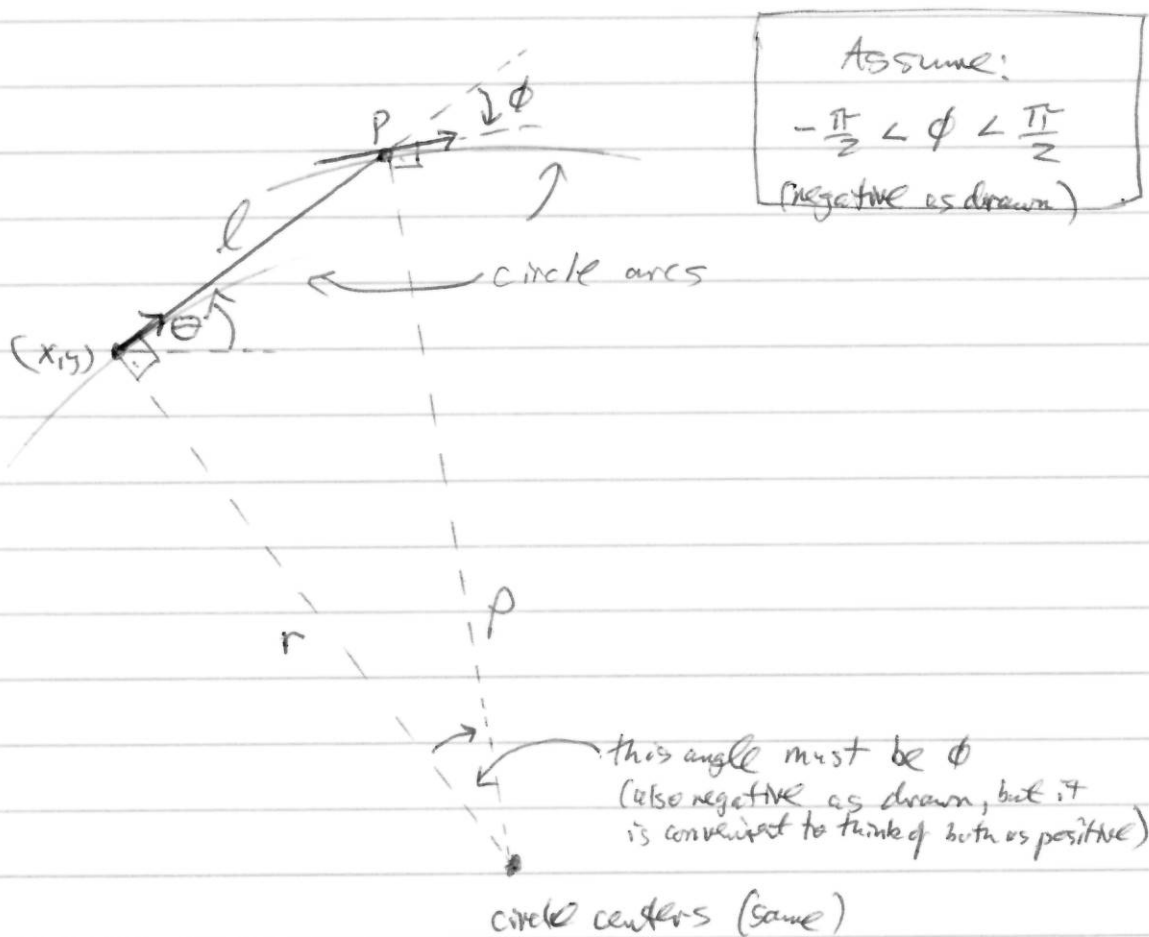 Assume:
-π/2 < ϕ < π/2
(negative as drawn)
ϕ
P
l
circle arcs
θ
(x,y)
ρ
r
this angle must be ϕ
(also negative as drawn, but it
is convenient to think of both as positive)
circle centers (same)